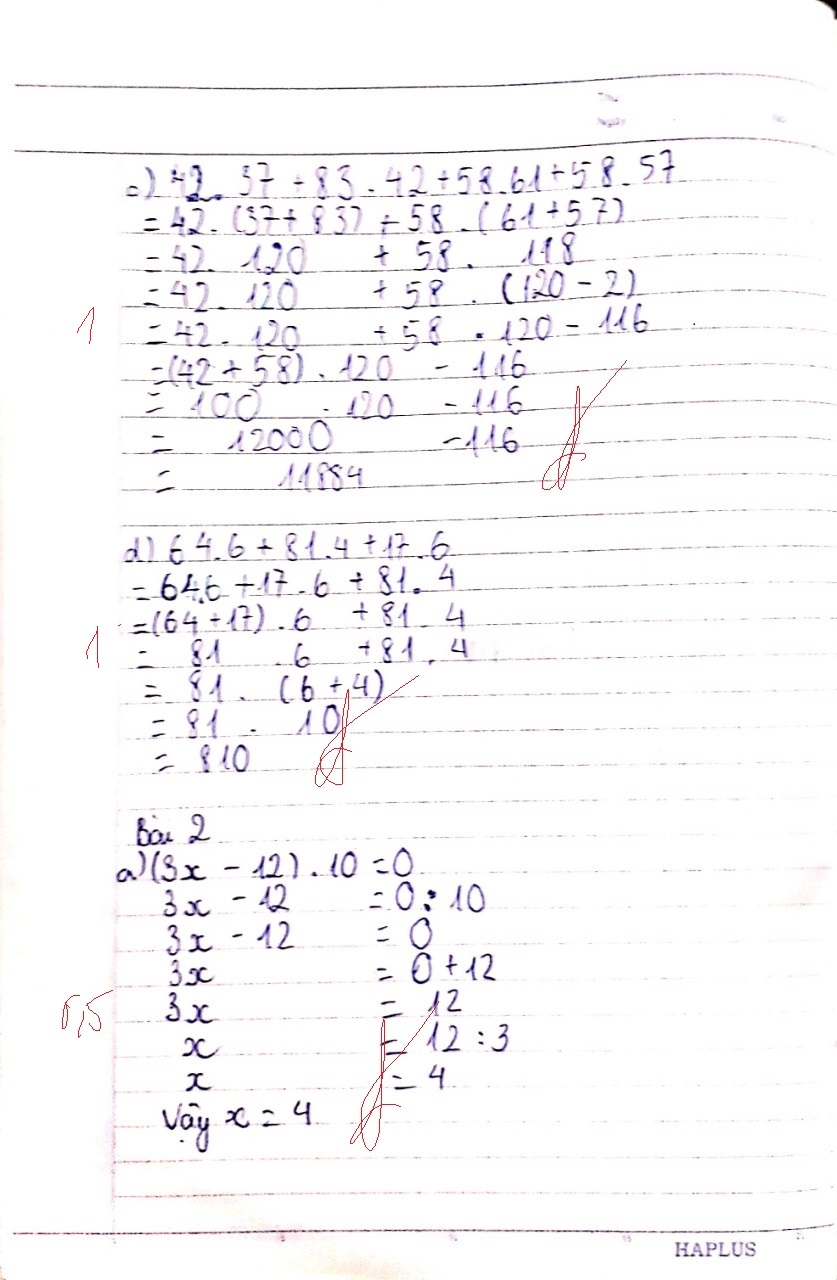 c) 42.37 + 83.42 + 58.61 + 58.57
= 42.(37 + 83) + 58.(61 + 57)
= 42. 120 + 58. 118
= 42. 120 + 58. (120 - 2)
1
= 42. 120 + 58. 120 - 116
= (42 + 58). 120 - 116
= 100 . 120 - 116
= 12000 - 116
= 11884
d) 64.6 + 81.4 + 17.6
= 64.6 + 17.6 + 81.4
= (64 + 17).6 + 81.4
1
= 81 . 6 + 81.4
= 81. (6 + 4)
= 81. 10
= 810
Bài 2
a) (3x - 12).10 = 0
3x - 12 = 0 : 10
3x - 12 = 0
3x = 0 + 12
0,5
3x = 12
x = 12 : 3
x = 4
Vậy x = 4
HAPLUS